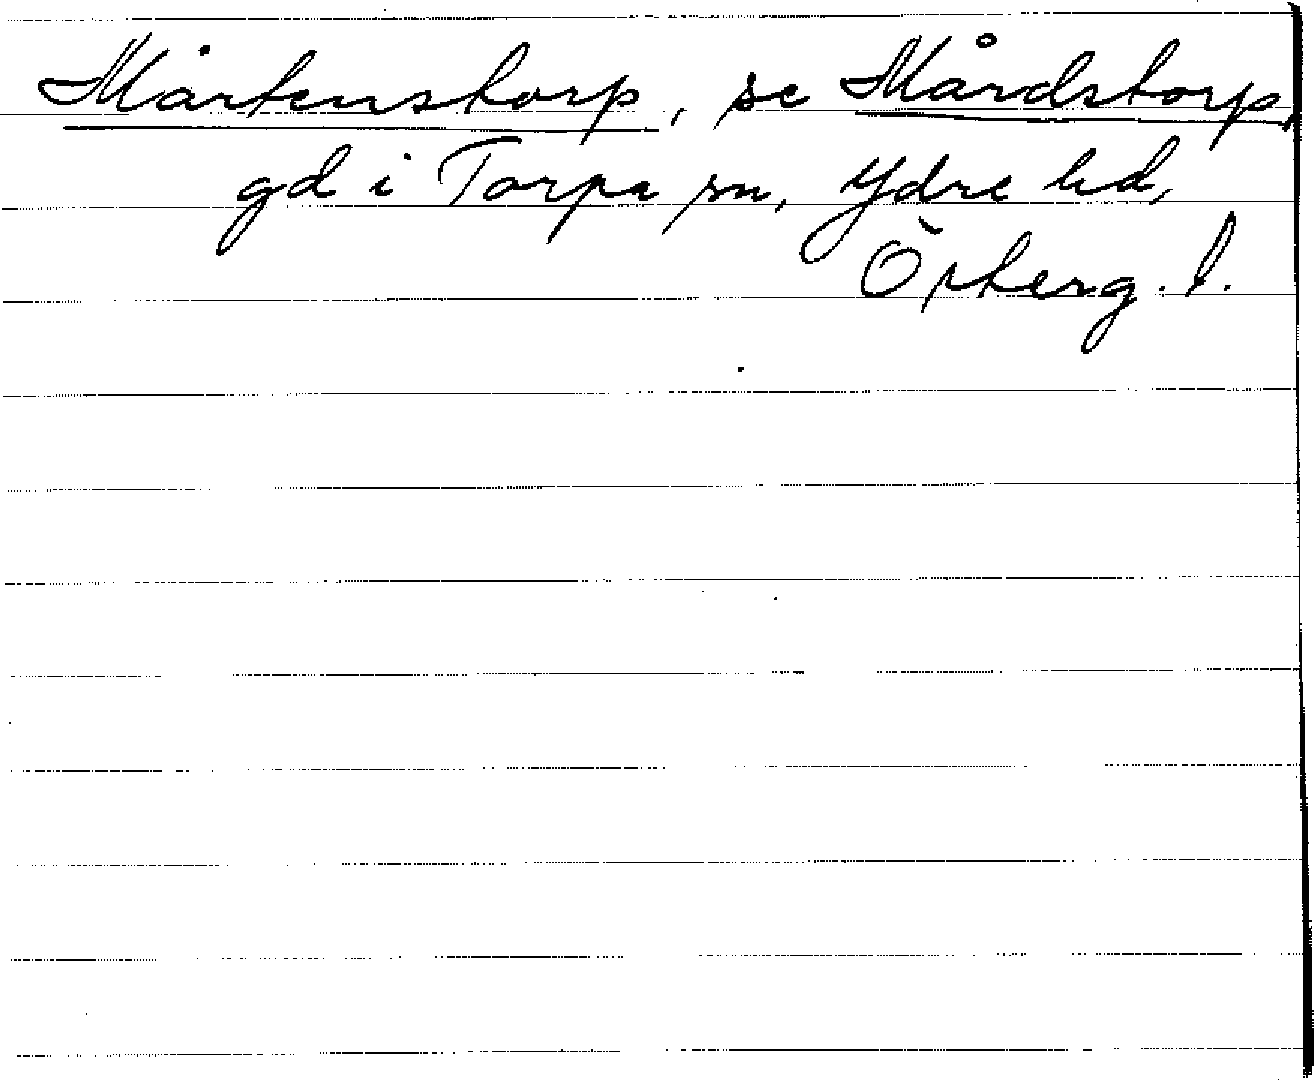 Mårtenstorp, se Mårdstorp,
gd i Torpa sn, Ydre hd,
Österg. l.